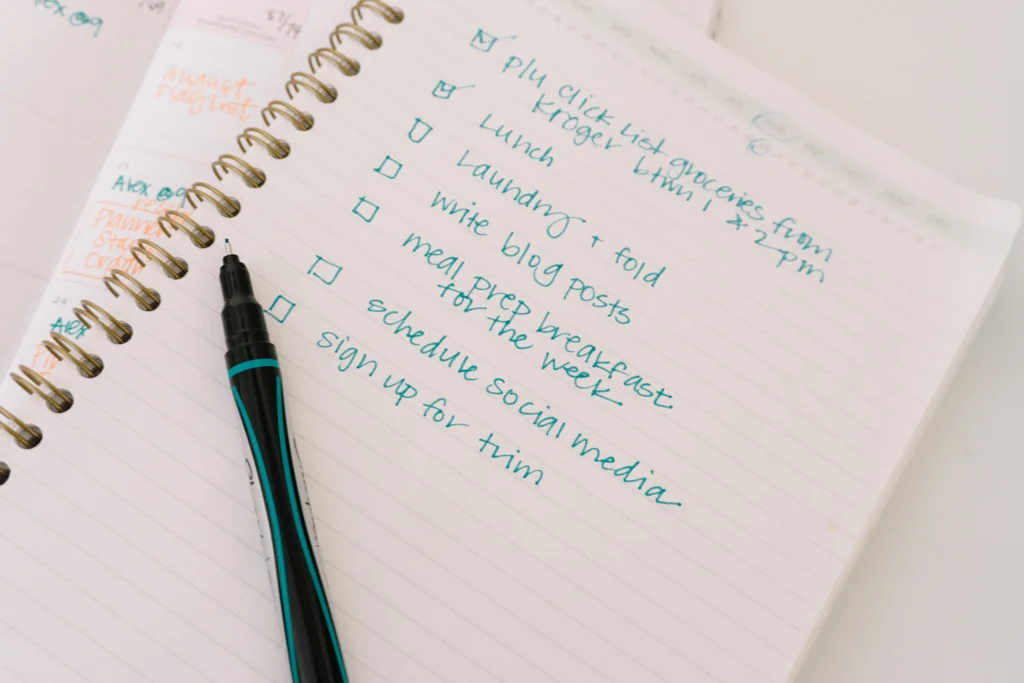 Alex @9
57/79
August
Playlist
Alex @9
Planner
24
Alex
plu click list groceries from
Kroger btwn 1 & 2 pm
Lunch
Laundry + fold
write blog posts
meal prep breakfast
for the week
schedule social media
sign up for trim